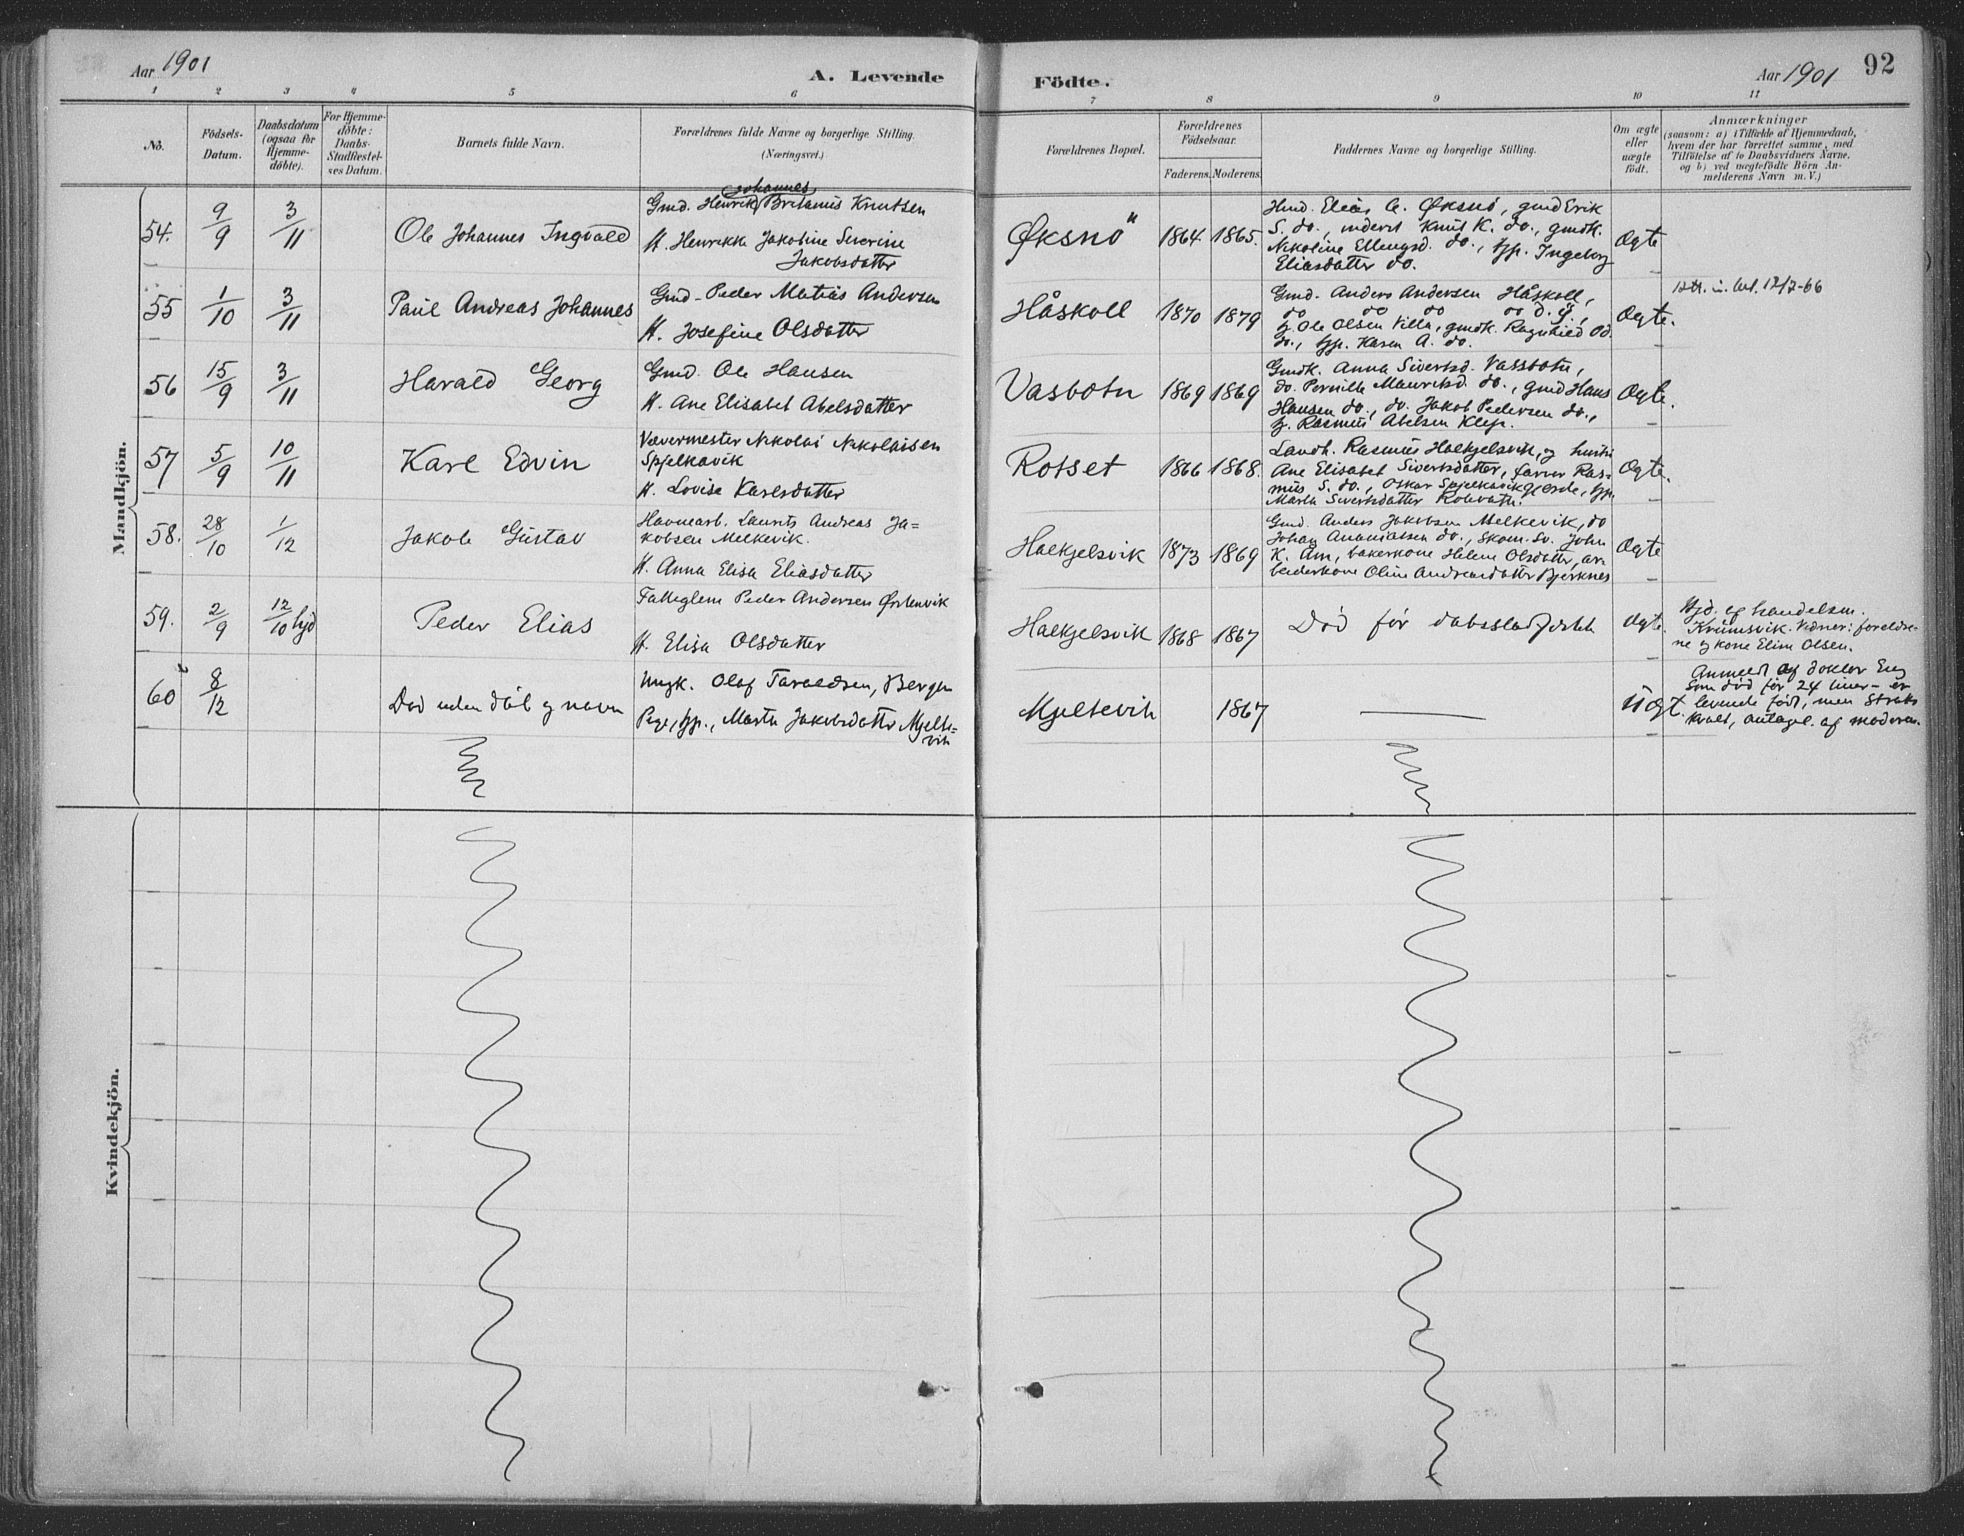 Aar 1901
A. Levende
Födte.
Aar 1901
92
1 2 3 4 5 6 7 8 9 10 11
No.
Födsels-
Datum.
Daabsdatum
(ogsaa for
Hjemme-
döbte).
For Hjemme-
döbte:
Daabs-
Stadfæstel-
ses Datum.
Barnets fulde Navn.
Forældrenes fulde Navne og borgerlige Stilling.
(Næringsvei.)
Forældrenes Bopæl.
Forældrenes
Födselsaar.
Faderens. Moderens.
Faddernes Navne og borgerlige Stilling.
Om ægte
eller
uægte
födt.
Anmærkninger
(saasom: a) i Tilfælde af Hjemmedaab,
hvem der har forrettet samme, med
Tilföielse af to Daabsvidners Navne,
og b) ved uægtefödte Börn An-
melderens Navn m. V.)
Mandkjön.
54.
9/9
3/11
Ole Johannes Ingvald
Johannes
Gmd. Henrik Britanius Knutsen
H. Henrikke Jakobine Severine
Jakobsdatter
Øksnö
1864 1865.
Hmd. Elias A. Øksnö, gmd Erik
S. do., inderst Knut K. do., gmdk.
Nikoline Ellengsd. do., tjp. Ingeborg
Eliasdatter do.
Ogte
55
1/10
3/11
Paul Andreas Johannes
Gmd. Peder Matias Andersen
H. Josefine Olsdatter
Håskoll
1870 1879
Gmd. Anders Andersen Håskoll,
do do do do d. y.,
Ole Olsen Villa, gmdk. Ragnhild Od.
do., tjp. Karen A. do.
Ogte.
12/7-66
56
15/9
3/11
Harald Georg
Gmd. Ole Hansen
H. Ane Elisabet Abelsdatter
Vasbotn
1869 1869
Gmdk. Anna Sivertsd. Vassbotn,
do. Pernille Mauritsd. do., gmd Hans
Hansen do., do. Jakob Pedersen do.,
Rasmus Abelsen Klep.
Ogte.
57
5/9
10/11
Karl Edvin
Vævermester Nikolai Nikolaisen
Spjelkavik
H. Lovise Karlsdatter
Rotset
1866 1868.
Landh. Rasmus Halkjelsvik, og hustru
Ane Elisabet Sivertsdatter, farver Ras-
mus S. do., Oskar Spjelkavikgjerde, tjp.
Marta Sivertsdatter
Ogte.
58.
28/10
1/12
Jakob Gustav
Havnearb. Laurits Andreas Ja-
kobsen Melkevik.
H. Anna Elisa Eliasdatter
Halkjelsvik
1873 1869
Gmd. Anders Jakobsen Melkevik, do
Johan Ananiassen do., skom.sv. John
K. Åm, bakerkone Helene Olsdatter, ar-
beiderkone Oline Andreasdatter Bjerknes
Ogte
59.
2/9
12/10 hjd
Peder Elias
Fattiglem Peder Andersen Østenvik
H. Elisa Olsdatter
Halkjelsvik
1868 1867
Död för dabsstadfestelse
Ogte.
Hjd. af handelsm.
Krumsvik. Vidner: foreldre-
ne og kone Eline Olsen.
60
8/12
Död uden dåb og navn
Ungk. Olaf Taraldsen, Bergen
Pige, tjp., Marta Jakobsdatter Mjelte-
vik
Mjeltevik
1867
Uegt.
Anmeldt af doktor Eeg
som död för 24 timer - er
levende född, men straks
kvalt, antagel. af moderen.
Kvindekjön.